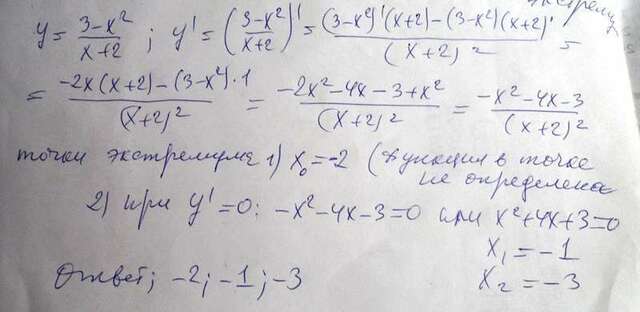 экстрему
y = (3-x²)/(x+2) ; y' = ((3-x²)/(x+2))' = ((3-x²)'(x+2)-(3-x²)(x+2)')/(x+2)² =
= (-2x(x+2)-(3-x²)·1)/(x+2)² = (-2x²-4x-3+x²)/(x+2)² = (-x²-4x-3)/(x+2)²
точки экстремума 1) x₀=-2 (функция в точке
не определена
2) при y'=0: -x²-4x-3=0 или x²+4x+3=0
x₁ = -1
x₂ = -3
Ответ; -2; -1; -3